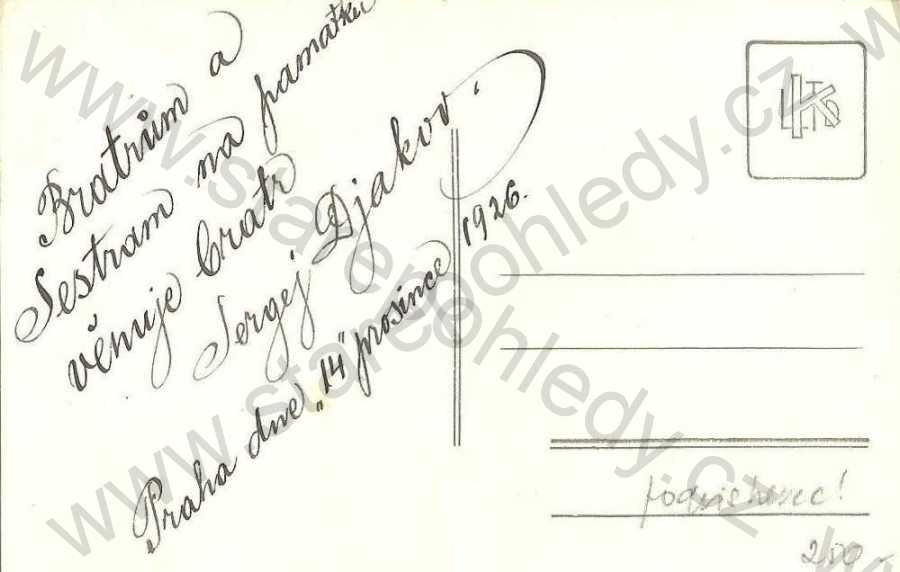 Bratrům a
Sestram na pamatku
věnuje bratr
Sergej Djakov.
Praha dne „14" prosince 1926.
200 -
www.starepohledy.cz
www.starepohledy.cz